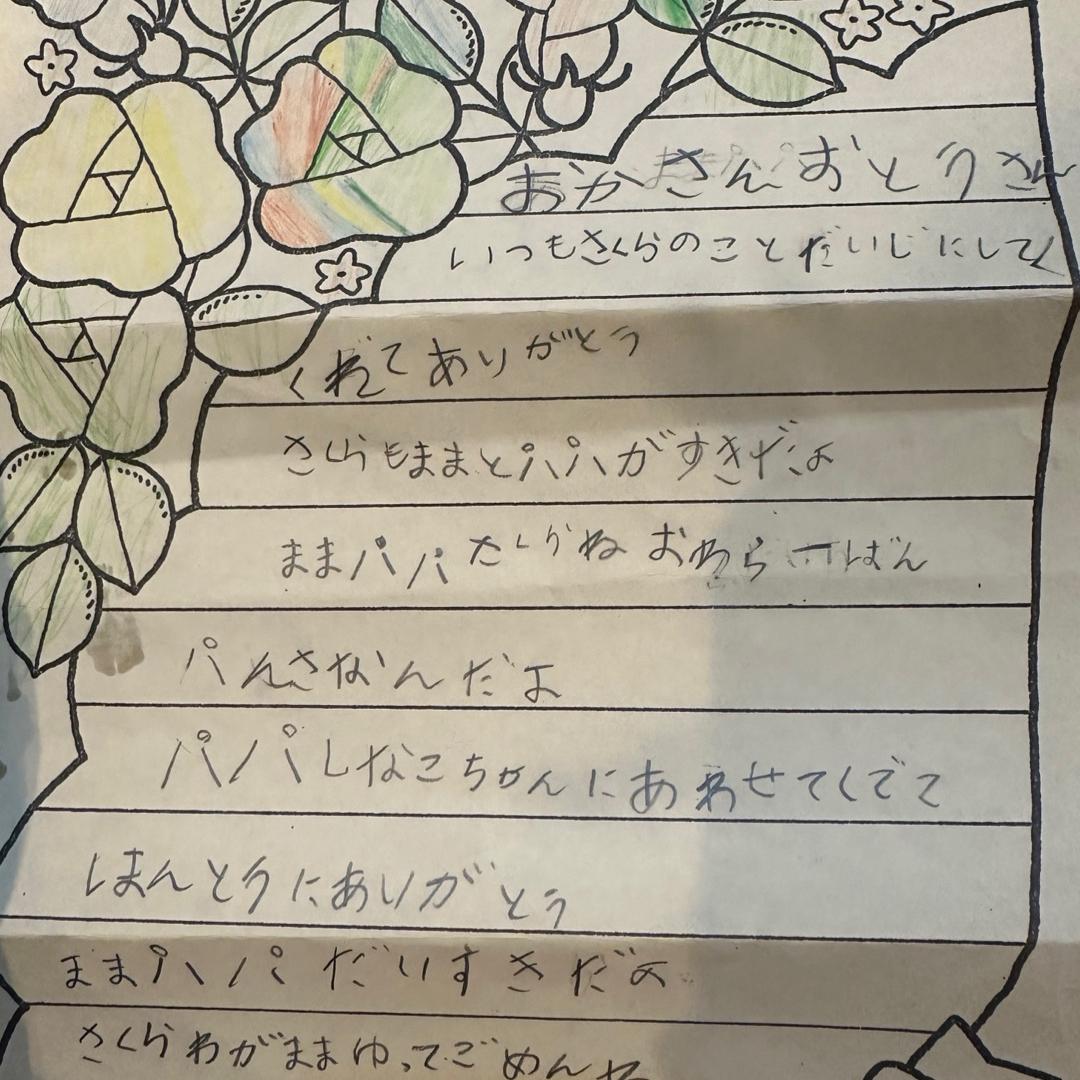 おかさんおとうさん
いつもさくらのことだいじにしてく
くれてありがとう
さくらもままとパパがすきだよ
ままパパさくらね おわら ばん
パんさなんだよ
パパしなこちゃんにあわせてくでて
ほんとうにありがとう
ままパパ だいすきだよ
さくらわがままゆってごめんね